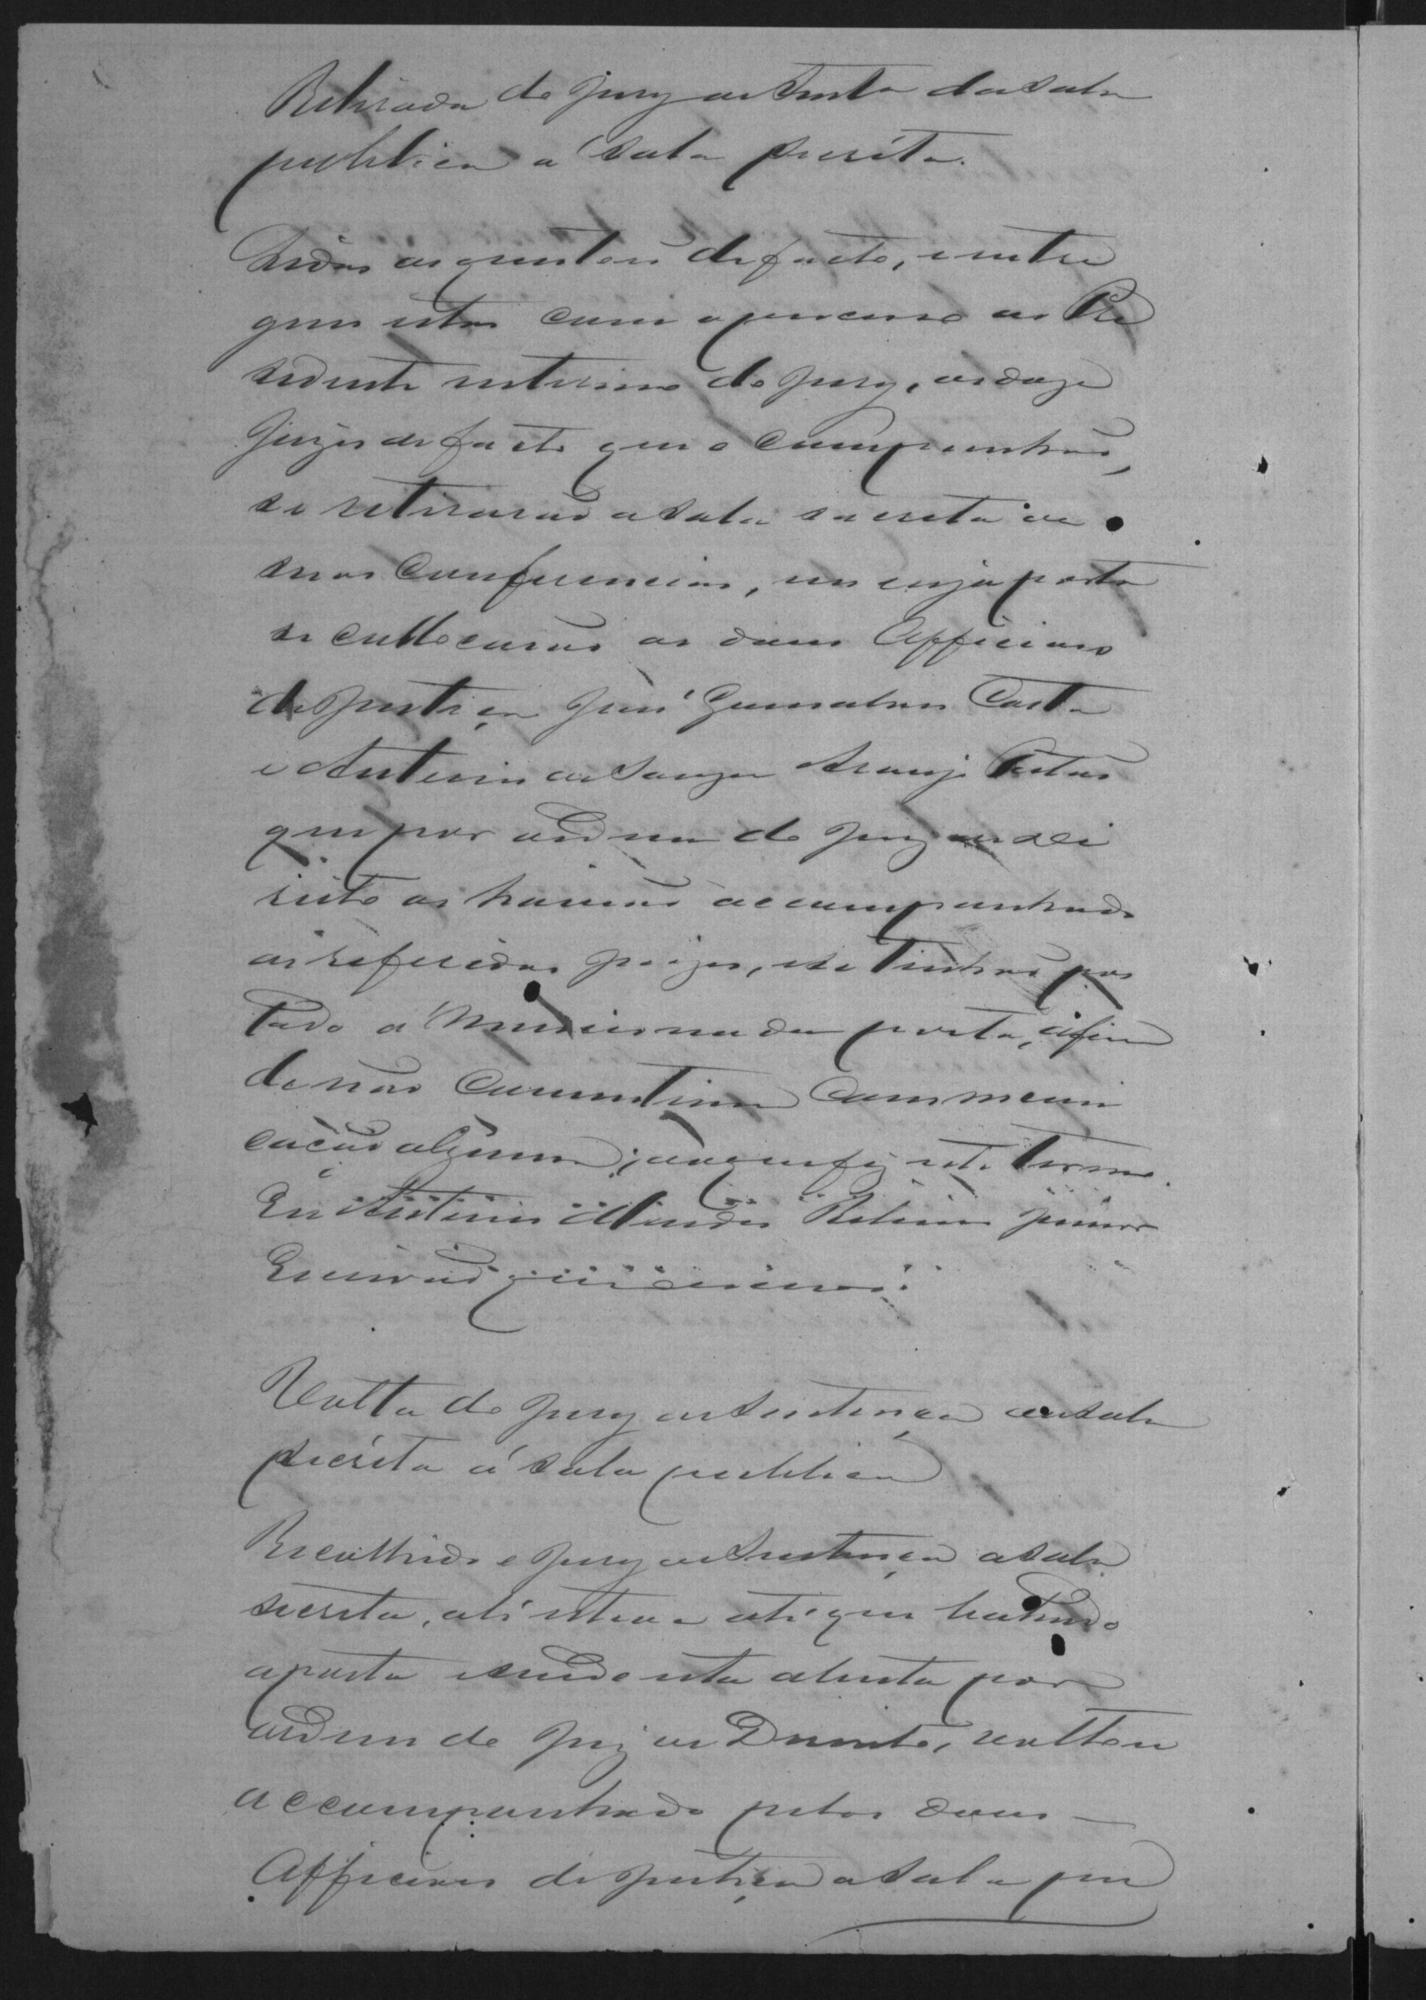 Retirada do Jury de Sentª da sala
publica a' sala secréta.
Lidas as questões de facto, e entre
gues estas com o processo ao Pre
sidente interino do Jury, os doze
Juizes de facto que o compunhão,
se retirarão a sala secreta de
suas conferencias, em cuja porta
se collocarão os dous Officiaes
de Justiça José Gonsalves Costa
e Antonio de Souza Araujo
que por ordem do Juiz de Di
reito os havião accompanhado
os referidos Juizes, e se tinhão pos
tado a' mencionada porta, afim
de não consentirem communi
cação alguma; do que fiz este termo.
Eu Antonio Mendes Ribeiro Junior
Escrivão que escrevi.
Volta do Jury de Sentença da sala
secréta a' sala publica
Recolhido o Jury de Sentença a sala
secreta, ali esteve até que batendo
a porta e sendo esta aberta por
ordem do Juiz de Direito, voltou
accompanhado pelos dous
Officiaes de Justiça a sala pu